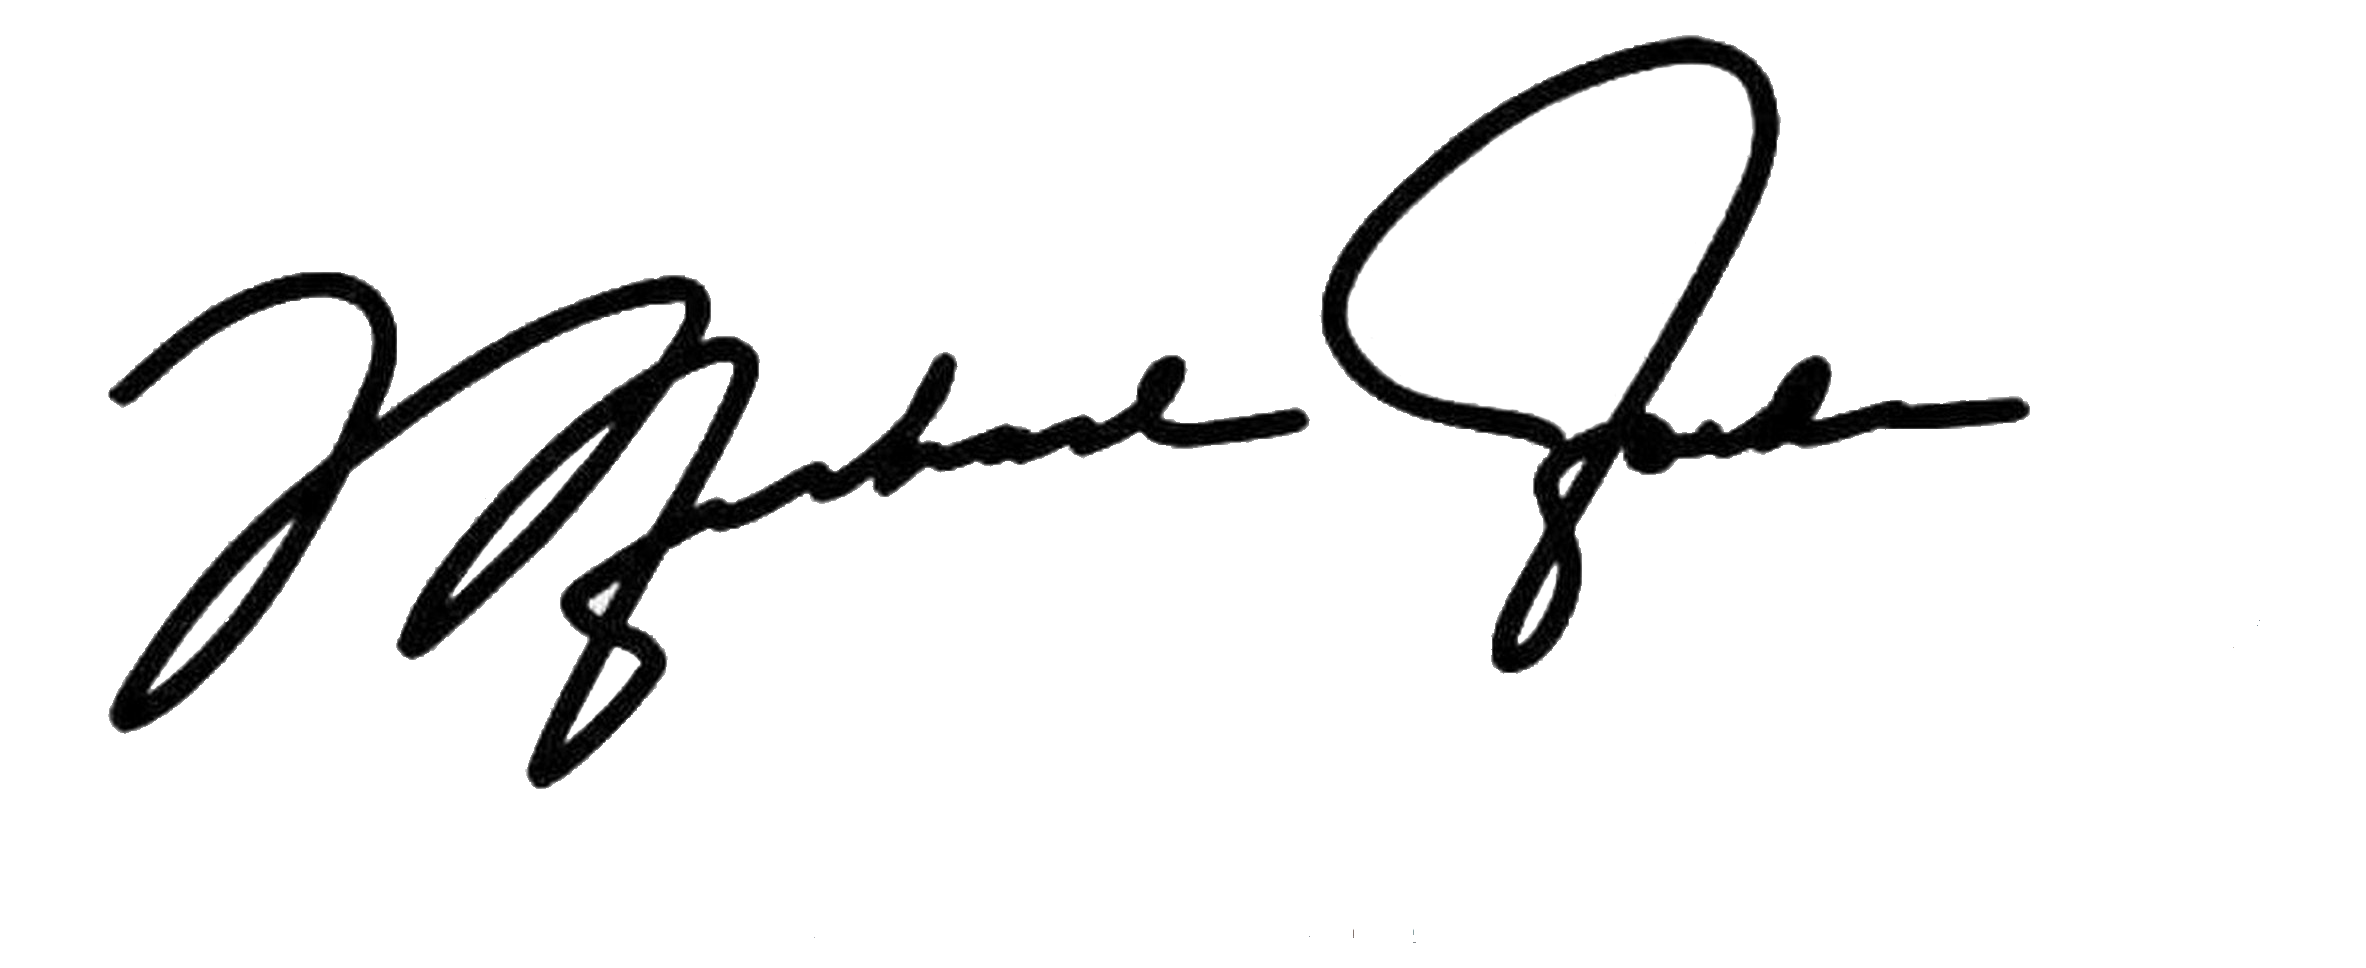 Michael Jordan